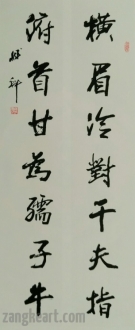 橫眉冷對千夫指
俯首甘為孺子牛
zangkeart.com